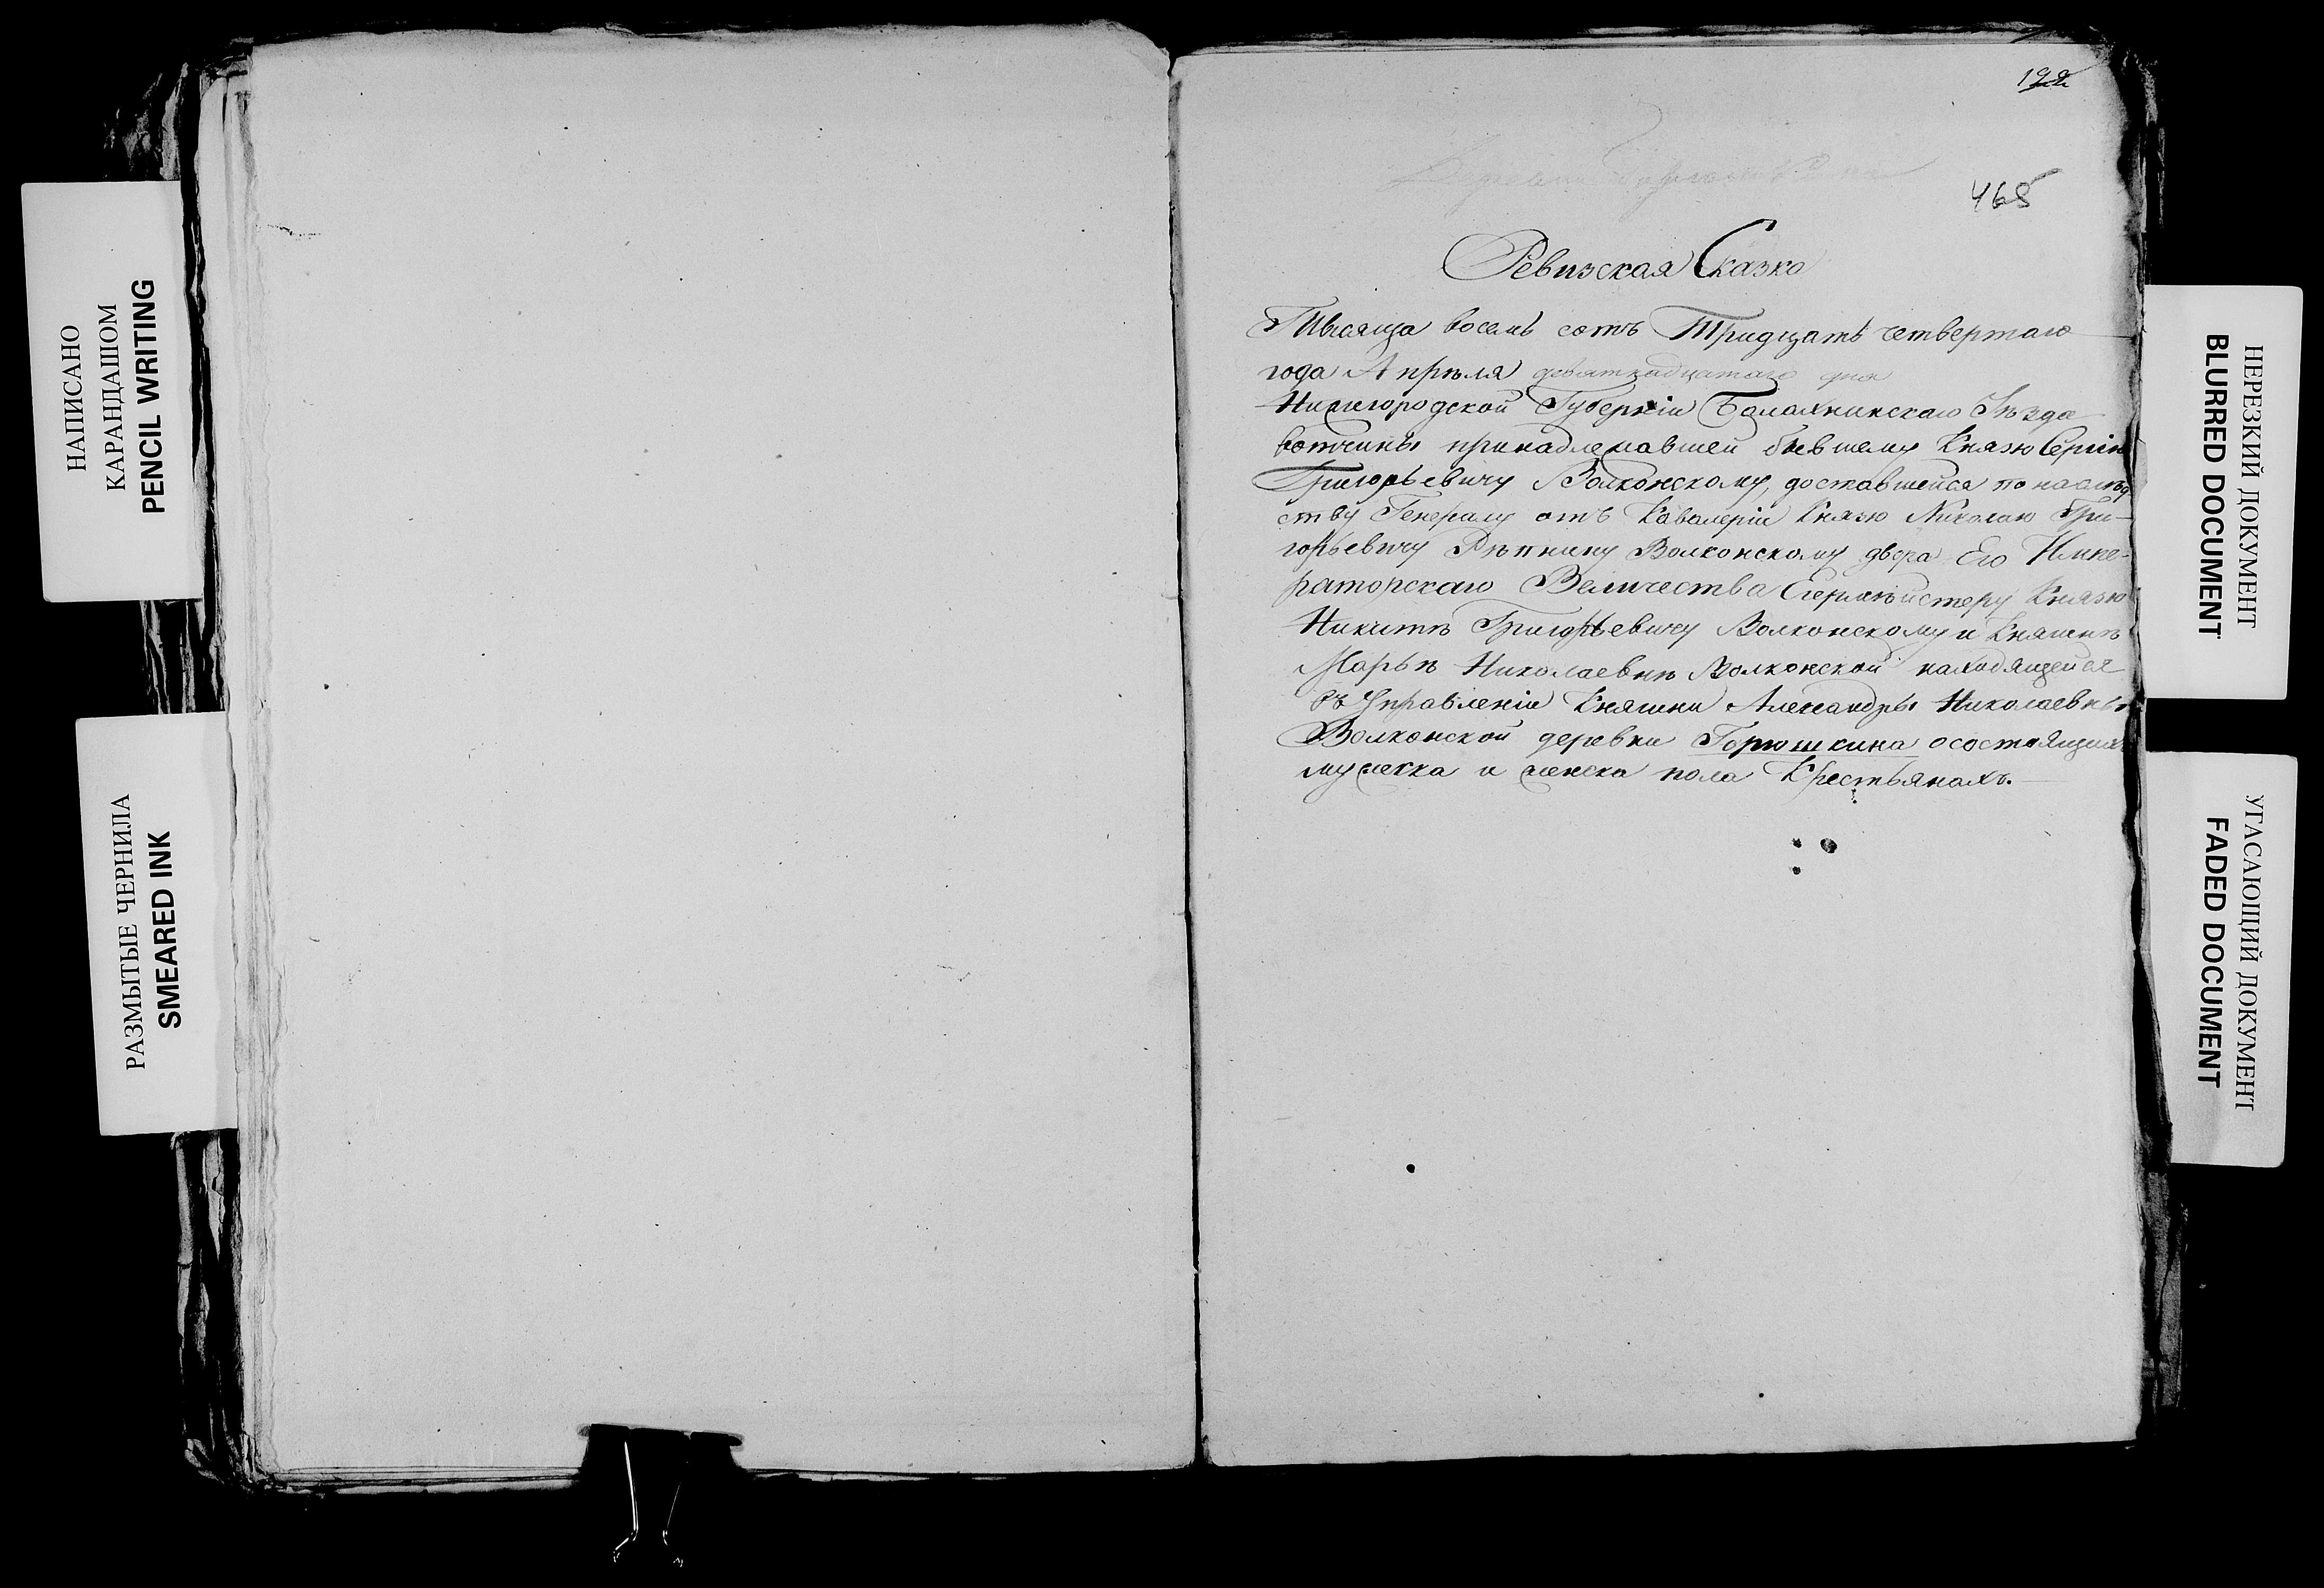 НАПИСАНО
КАРАНДАШОМ
PENCIL WRITING
РАЗМЫТЫЕ ЧЕРНИЛА
SMEARED INK
468
Ревизская Сказка
Тысяща восемь сотъ Тридцать четвертаго
года Апрѣля девятнадцатаго дня
Нижегородской Губерніи Балахнинскаго Уѣзда
вотчины принадлежавшей бывшему Князю Сергію
Григорьевичу Волконскому, доставшейся по наслѣд
ству Генералу отъ Кавалеріи Князю Николаю Гри-
горьевичу Рѣпнину Волконскому двора Его Импе-
раторскаго Величества Егермейстеру Князю
Никитѣ Григорьевичу Волконскому и Княжнѣ
Марьѣ Николаевнѣ Волконской находящейся
въ Управленіи Княжны Александры Николаевны
Волконской деревни Горюшкина о состоящихъ
мужекка и женска пола Крестьянахъ.
НЕРЕЗКИЙ ДОКУМЕНТ
BLURRED DOCUMENT
УГАСАЮЩИЙ ДОКУМЕНТ
FADED DOCUMENT